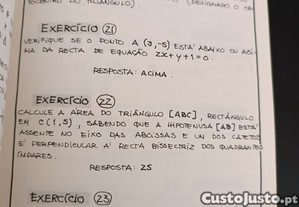 BICENTRO DO TRIÂNGULO)
(DESIGNADO O OR
EXERCÍCIO 21
VERIFIQUE SE O PONTO A (3,-5) ESTÁ ABAIXO OU ACI-
NA DA RECTA DE EQUAÇÃO 2x+y+1=0.
RESPOSTA: ACIMA.
EXERCÍCIO 22
CALCULE A ÁREA DO TRIÂNGULO [ABC], RECTÂNGULO
EM C(1,5), SABENDO QUE A HIPOTENUSA [AB] ESTÁ
ASSENTE NO EIXO DAS ABCISSAS E UM DOS CATETOS
É PERPENDICULAR À RECTA BISSECTRIZ DOS QUADRANTES
ÍMPARES.
RESPOSTA: 25
EXERCÍCIO 23
CustoJusto.pt